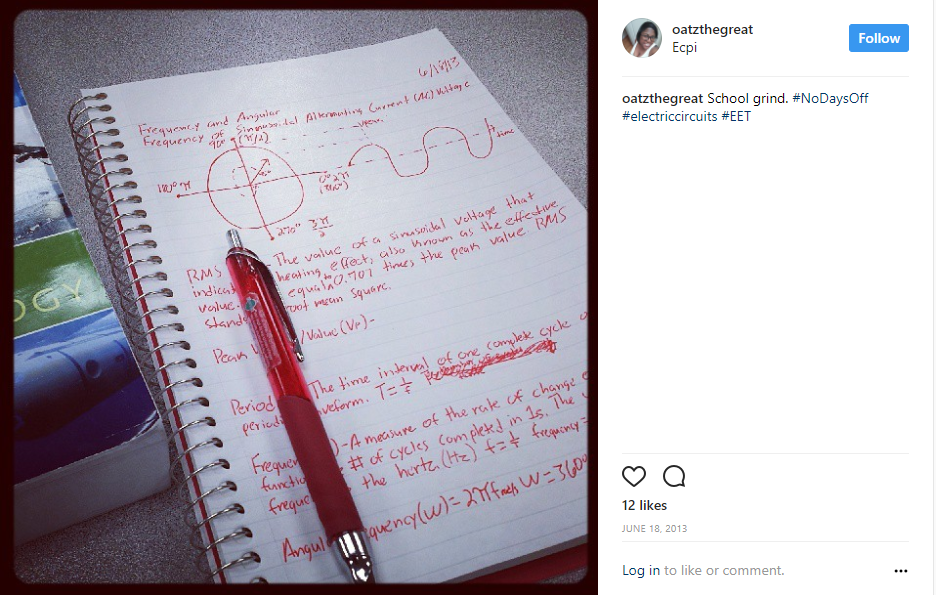 6/18/13
Frequency and Angular
Frequency of Sinusoidal Alternating Current (AC) Voltage
90° (π/2)
180° π
0° 2π
(360°)
time
270° 3π/2
RMS - The value of a sinusoidal voltage that
indica heating effect, also known as the effective
value. equal to 0.707 times the peak value. RMS
stands oot mean square.
Peak V /Value (Vp) -
Period The time interval of one complete cycle o
periodi veform. T = 1/f
Frequen ) - A measure of the rate of change
function # of cycles completed in 1s. The
freque the hertz (Hz) f = 1/T frequency =
Angul quency (W) = 2πf rad/s W = 360°
OGY
oatzthegreat
Ecpi
Follow
oatzthegreat School grind. #NoDaysOff
#electriccircuits #EET
12 likes
JUNE 18, 2013
Log in to like or comment.